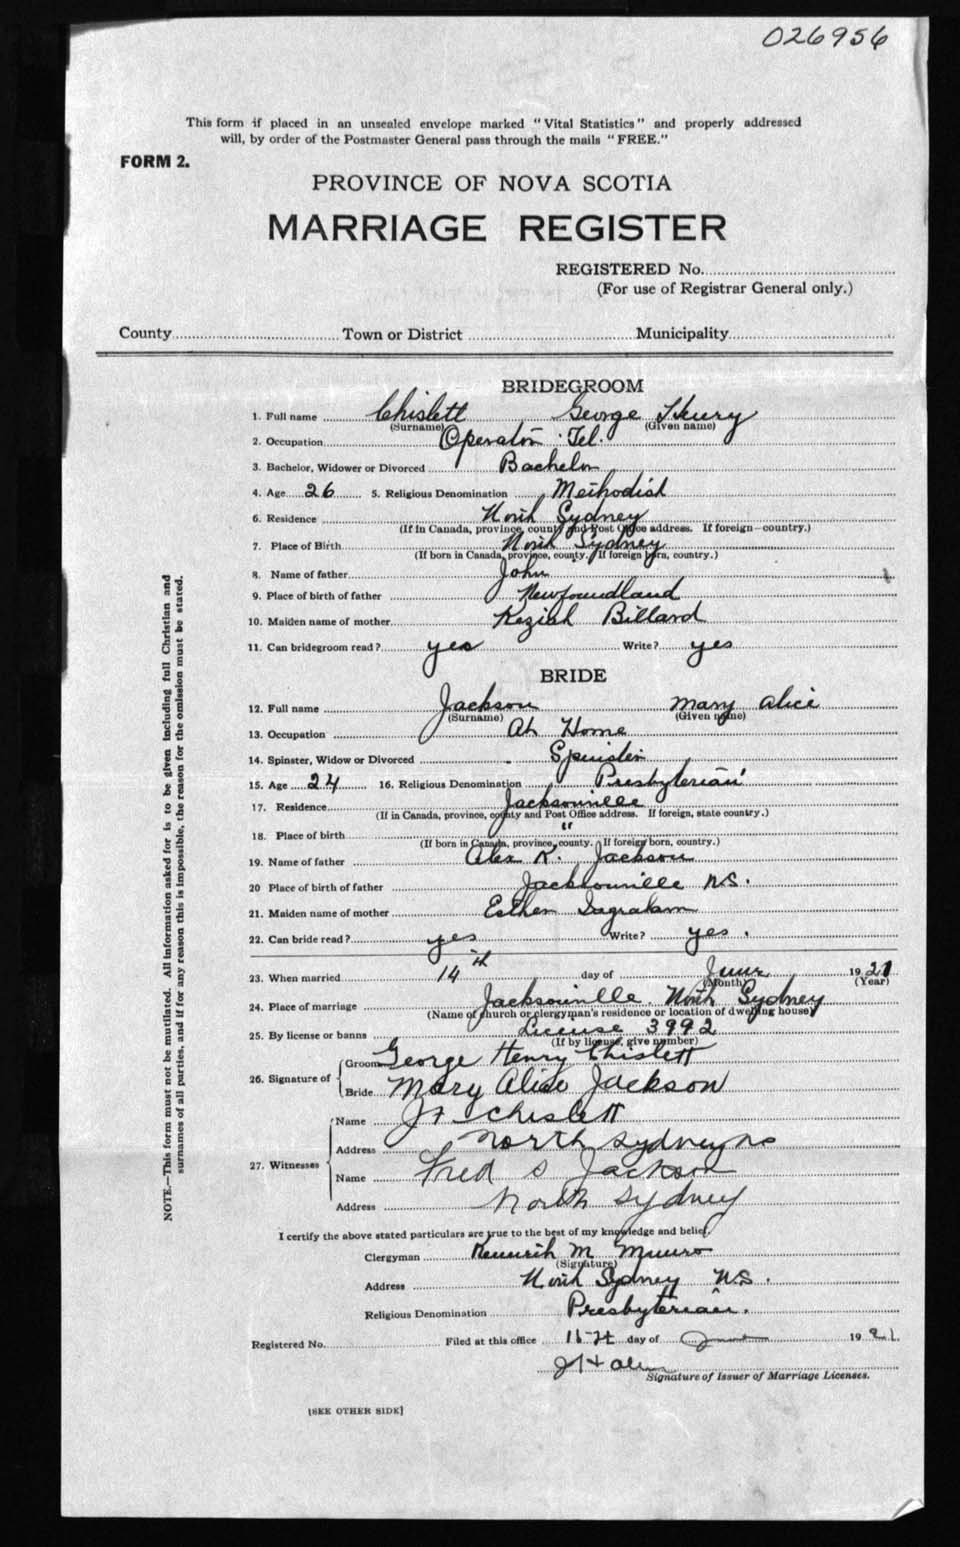 026956
This form if placed in an unsealed envelope marked "Vital Statistics" and properly addressed
will, by order of the Postmaster General pass through the mails "FREE."
FORM 2.
PROVINCE OF NOVA SCOTIA
MARRIAGE REGISTER
REGISTERED No.
(For use of Registrar General only.)
County Town or District Municipality
BRIDEGROOM
1. Full name Chislett George Henry
(Surname) (Given name)
2. Occupation Operator Tel.
3. Bachelor, Widower or Divorced Bachelor
4. Age 26 5. Religious Denomination Methodist
6. Residence North Sydney
(If in Canada, province, county and Post Office address. If foreign—country.)
7. Place of Birth North Sydney
(If born in Canada, province, county. If foreign born, country.)
8. Name of father John
9. Place of birth of father Newfoundland
10. Maiden name of mother Keziah Billard
11. Can bridegroom read? yes Write? yes
BRIDE
12. Full name Jackson Mary Alice
(Surname) (Given name)
13. Occupation At Home
14. Spinster, Widow or Divorced Spinster
15. Age 24 16. Religious Denomination Presbyterian
17. Residence Jacksonville
(If in Canada, province, county and Post Office address. If foreign, state country.)
18. Place of birth "
(If born in Canada, province, county. If foreign born, country.)
19. Name of father Alex K. Jackson
20 Place of birth of father Jacksonville N.S.
21. Maiden name of mother Esther
22. Can bride read? yes Write? yes.
23. When married 14th day of June 1921
(Month) (Year)
24. Place of marriage Jacksonville North Sydney
(Name of church or clergyman's residence or location of dwelling house)
25. By license or banns License 3992
(If by license, give number)
26. Signature of Groom George Henry Chislett
Bride Mary Alice Jackson
27. Witnesses Name Chislett
Address North Sydney NS
Name Fred S Jackson
Address North Sydney
I certify the above stated particulars are true to the best of my knowledge and belief.
Clergyman Kenneth M Munro
(Signature)
Address North Sydney N.S.
Religious Denomination Presbyterian.
Registered No. Filed at this office day of June 1921
Signature of Issuer of Marriage Licenses.
[SEE OTHER SIDE]
NOTE.—This form must not be mutilated. All information asked for is to be given including full Christian and
surnames of all parties, and if for any reason this is impossible, the reason for the omission must be stated.